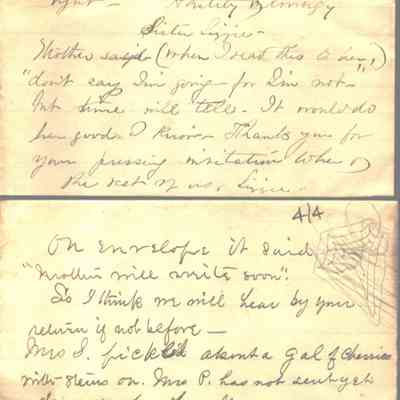 night - 
Sister Lizzie -
Mother said (when I read this to her,)
"don't say I'm going - for I'm not -"
but time will tell - It would do
her good I know - Thanks you for
your pressing invitation to the
the rest of us, Lizzie -
4/4
On envelope it said
"Mother will write soon".
So I think we will hear by your
return if not before -
Mrs S. pickled about a gal of cherries
with stems on. Mrs P. has not sent yet